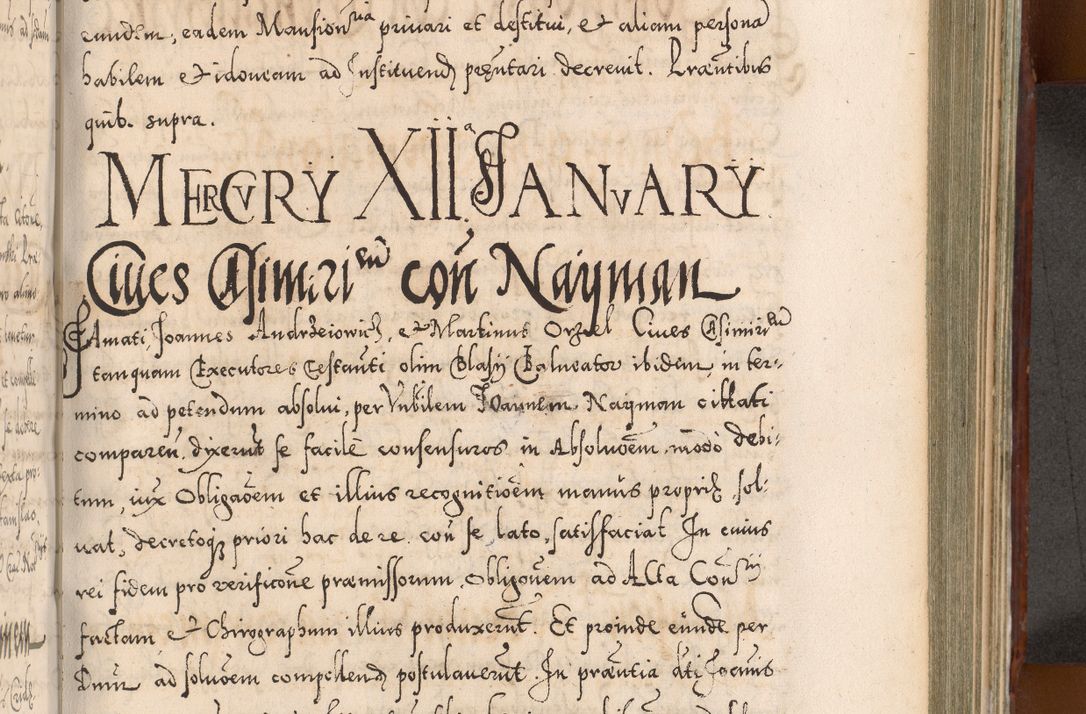 eundem, eadem Mansion<sup>ria</sup> privari et destitui, et aliam personā
habilem et idoneam ad Instituend pntari decrevit. Pраntibus
quib. supra.
MERCVRY XII IANVARY
Ciues Casimiri<sup>en</sup> con Nayman
Famati, Joannes Andrzeiowicz, et Martinus Orzel Ciues Casimiri<sup>en</sup>
tanquam Executores Testanti olim Blasij Balneator ibidem, in ter-
mino ad petendum absolui, per Nobilem Joannem Nayman cittati
comparen, dixerunt se facile consensuros in Absoluoem, modo debi-
tum, iux Obligaoem et illius recognitioem manus propriæ, sol-
uat, decretoq priori hac de re con se lato, satisfaciat In cuius
rei fidem pro verificone præmissorum Obligouem ad Acta Con
factam et Chirographum illius produxerunt. Et proinde eunde per
Dnm ad soluoem compellend postulaverunt. In præntia dti Joannis